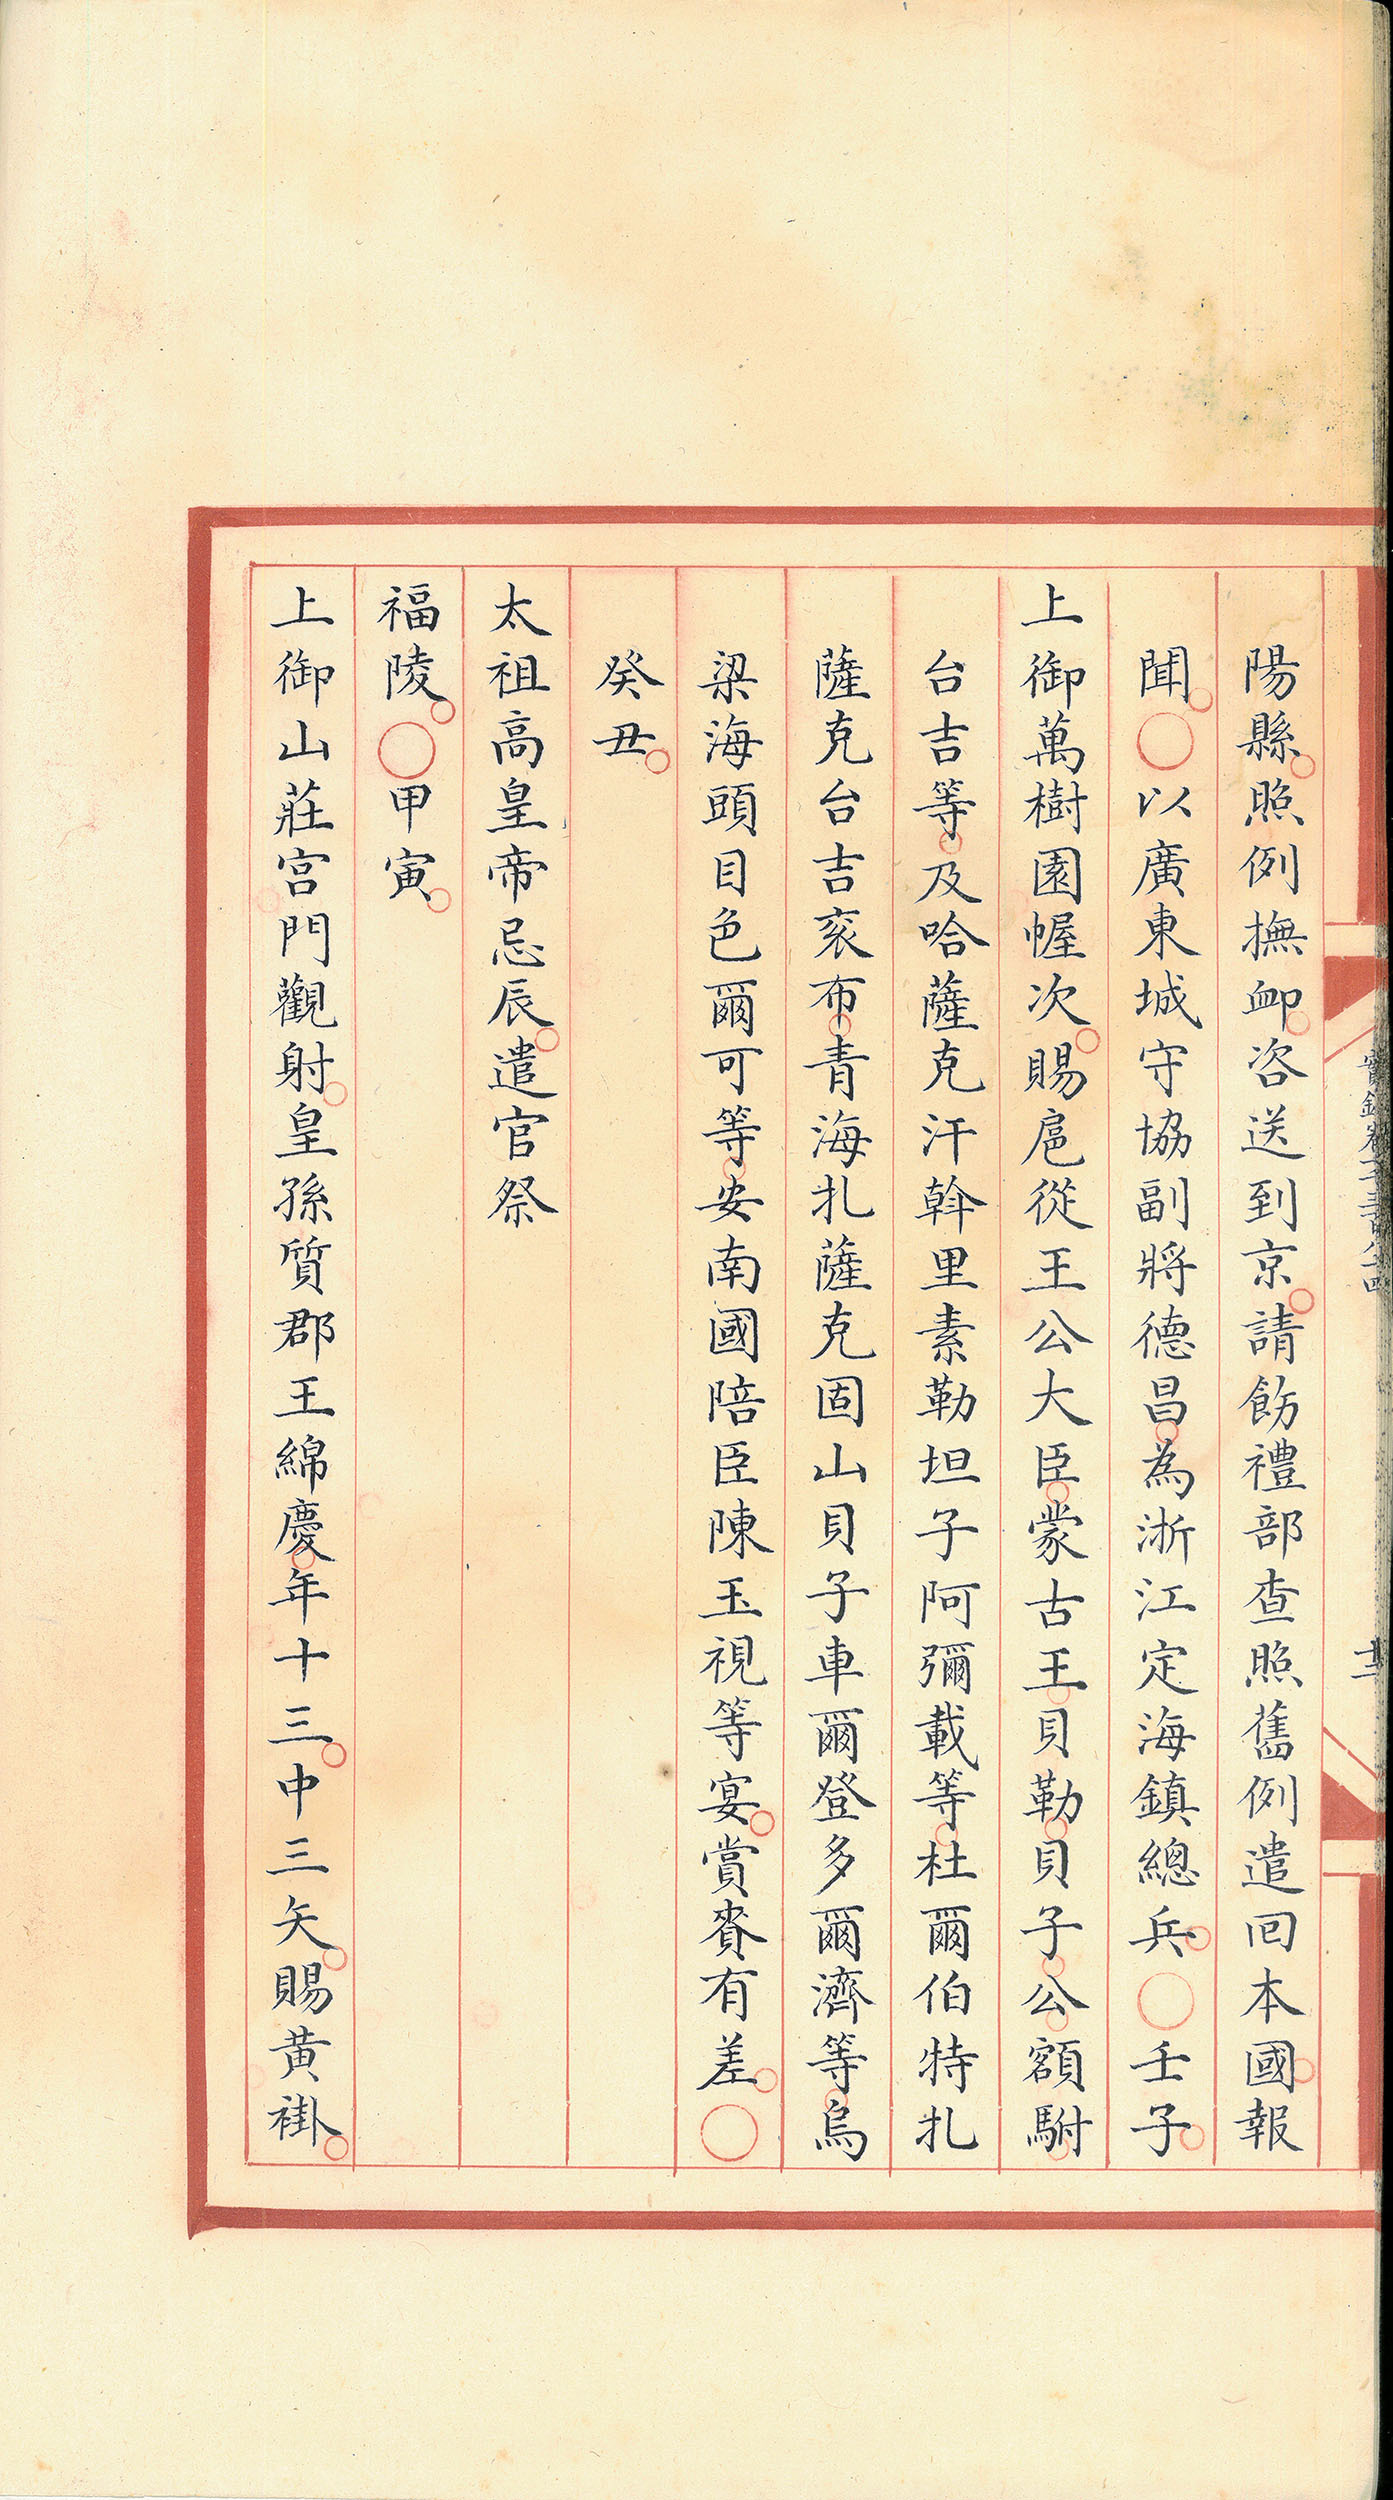 陽縣照例撫卹咨送到京請飭禮部查照舊例遣回本國報
聞○以廣東城守協副將德昌為浙江定海鎮總兵○壬子
上御萬樹園幄次賜扈從王公大臣蒙古王貝勒貝子公額駙
台吉等及哈薩克汗斡里素勒坦子阿彌載等杜爾伯特扎
薩克台吉衮布青海扎薩克固山貝子車爾登多爾濟等烏
梁海頭目色爾可等安南國陪臣陳玉視等宴賞賚有差○
癸丑
太祖高皇帝忌辰遣官祭
福陵○甲寅
上御山莊宮門觀射皇孫質郡王綿慶年十三中三矢賜黃褂